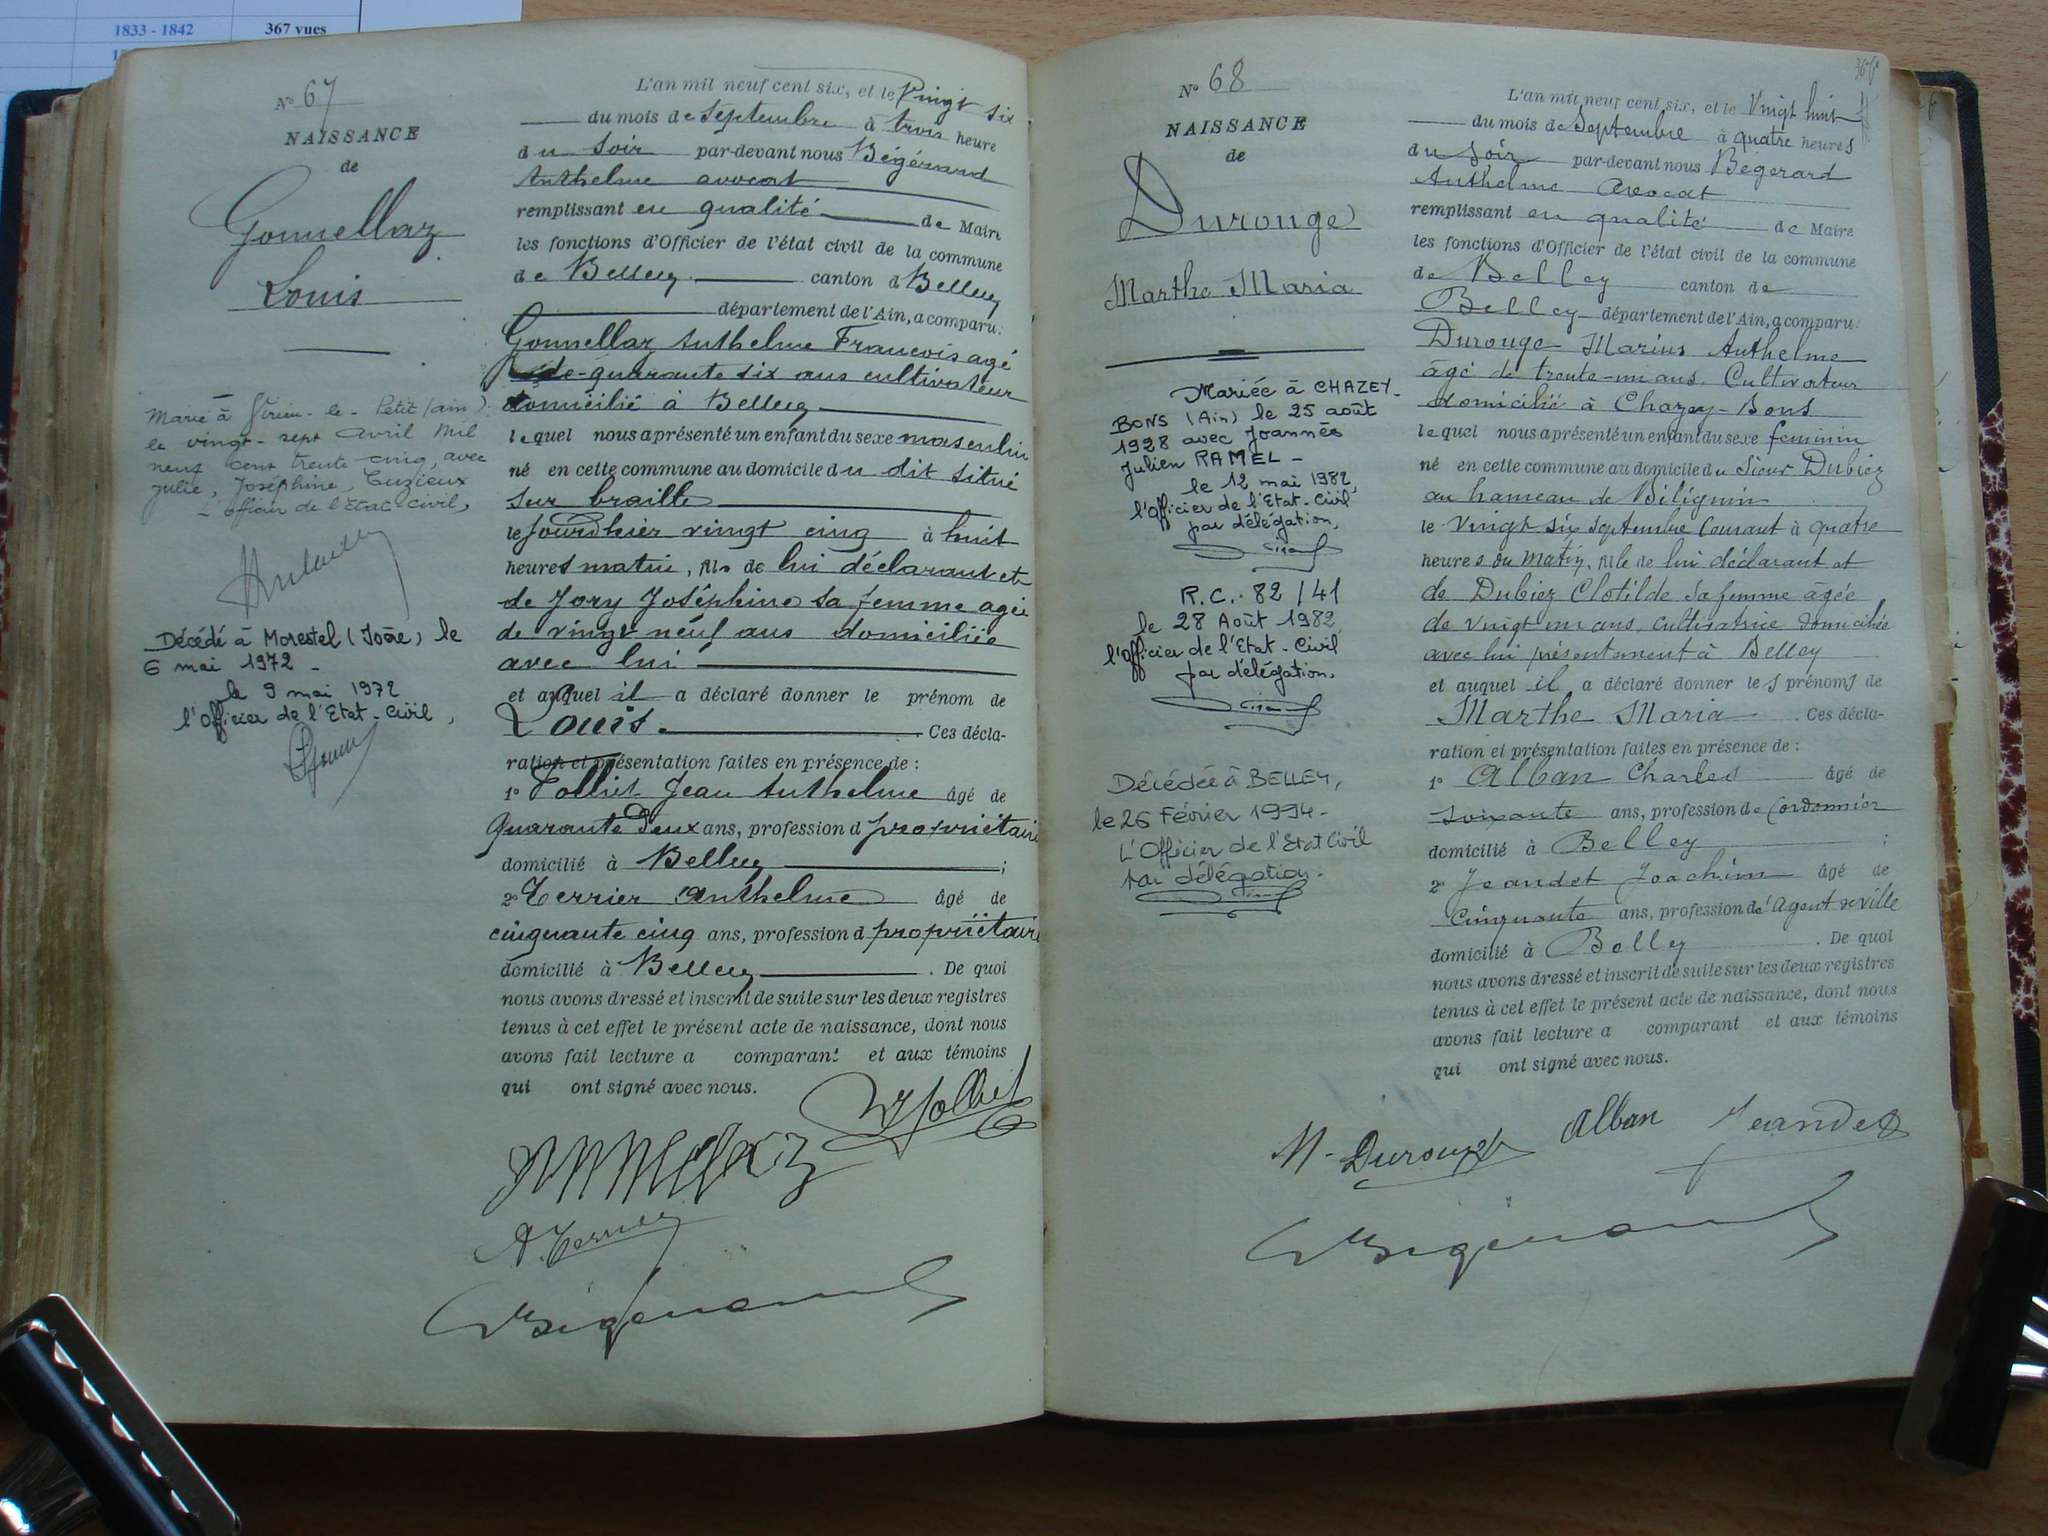 1833 - 1842 367 vues
N° 67
NAISSANCE
de
Gonnellaz
Louis
Marié à Virieu-le-Petit (ain)
le vingt-sept avril mil
neuf cent trente cinq, avec
Julie, Joséphine, Cuzieux
L'officier de l'Etat Civil,
Décédé à Morestel (Isère) le
6 mai 1972 -
le 9 mai 1972
l'Officier de l'Etat-Civil,
L'an mil neuf cent six, et le Vingt six
du mois de Septembre à trois heure
du Soir par-devant nous Bégérard
Anthelme avocat
remplissant en qualité de Maire
les fonctions d'Officier de l'état civil de la commune
de Belley canton d Belley
département de l'Ain, a comparu:
Gonnellaz Anthelme Francois agé
de quarante six ans cultivateur
domicilié à Belley
lequel nous a présenté un enfant du sexe masculin
né en cette commune au domicile du dit situé
sur braille
le jourd'hier vingt cinq à huit
heures matin, fils de lui déclarant et
de Jory Joséphine sa femme agée
de vingt neuf ans domiciliée
avec lui
et auquel il a déclaré donner le prénom de
Louis. Ces décla-
ration et présentation faites en présence de :
1° Folliet Jean Anthelme âgé de
Quarante Deux ans, profession d propriétaire
domicilié à Belley ;
2° Terrier Anthelme âgé de
cinquante cinq ans, profession d propriétaire
domicilié à Belley . De quoi
nous avons dressé et inscrit de suite sur les deux registres
tenus à cet effet le présent acte de naissance, dont nous
avons fait lecture a comparant et aux témoins
qui ont signé avec nous.
Folliet
Gonnellaz
A. Terrier
Bégérard
N° 68
NAISSANCE
de
Durouge
Marthe Maria
Mariée à CHAZEY-
BONS (Ain) le 25 août
1928 avec Joannès
Julien RAMEL -
le 12 mai 1982,
l'Officier de l'Etat-Civil
par délégation,
R.C. 82 / 41
le 28 Août 1982,
l'Officier de l'Etat-Civil
par délégation.
Décédée à BELLEY,
le 26 Février 1994-
L'Officier de l'Etat Civil
par délégation.
L'an mil neuf cent six, et le Vingt huit
du mois de Septembre à quatre heures
du Soir par-devant nous Bégerard
Anthelme Avocat
remplissant en qualité de Maire
les fonctions d'Officier de l'état civil de la commune
de Belley canton de
Belley département de l'Ain, a comparu:
Durouge Marius Anthelme
âgé de trente-un ans, Cultivateur
domicilié à Chazey-Bons
lequel nous a présenté un enfant du sexe feminin
né en cette commune au domicile du Sieur Dubiez
au hameau de Biliguin
le vingt six septembre courant à quatre
heures du Matin, fille de lui déclarant et
de Dubiez Clotilde sa femme âgée
de vingt un ans, cultivatrice domiciliée
avec lui présentement à Belley
et auquel il a déclaré donner les prénoms de
Marthe Maria . Ces décla-
ration et présentation faites en présence de :
1° Alban Charles âgé de
soixante ans, profession de Cordonnier
domicilié à Belley ;
2° Jeandet Joachim âgé de
Cinquante ans, profession de l'Agent de Ville
domicilié à Belley . De quoi
nous avons dressé et inscrit de suite sur les deux registres
tenus à cet effet le présent acte de naissance, dont nous
avons fait lecture a comparant et aux témoins
qui ont signé avec nous.
M. Durouge Alban Jeandet
Bégérard